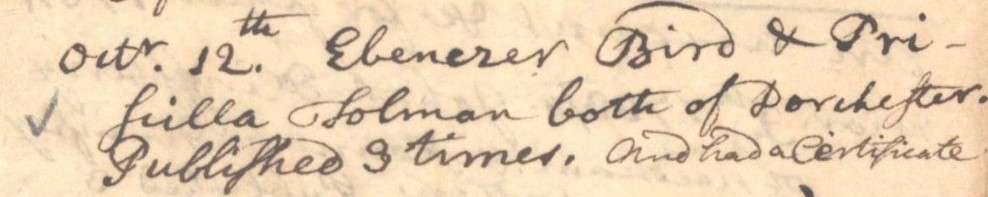 Octr. 12.th Ebenezer Bird & Pri-
ſcilla Tolman both of Dorcheſter.
Publiſhed 3 times. And had a Certificate